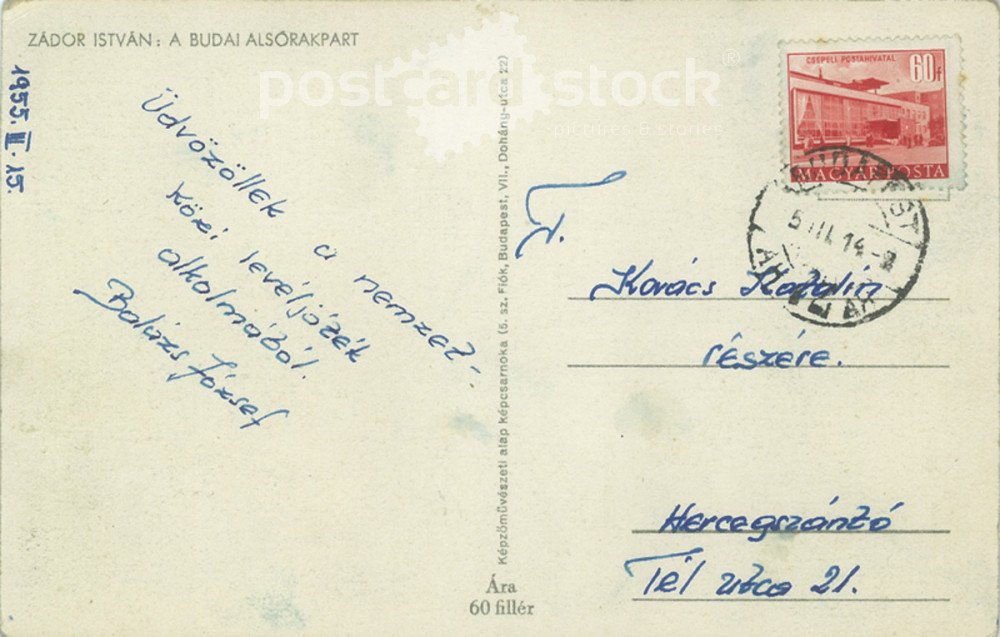 ZÁDOR ISTVÁN: A BUDAI ALSÓRAKPART
1955. III. 15.
Üdvözöllek a nemzet-
közi levéljáték
alkalmából.
Balázs József
postcardstock
Képzőművészeti alap képcsarnoka (5. sz. Fiók, Budapest, VII., Dohány-utca 22)
Ára
60 fillér
CSEPELI POSTAHIVATAL
60f
MAGYAR POSTA
BUDAPEST
5 III. 14
F.
Kovács Katalin
részére.
Hercegszántó
Tél utca 21.